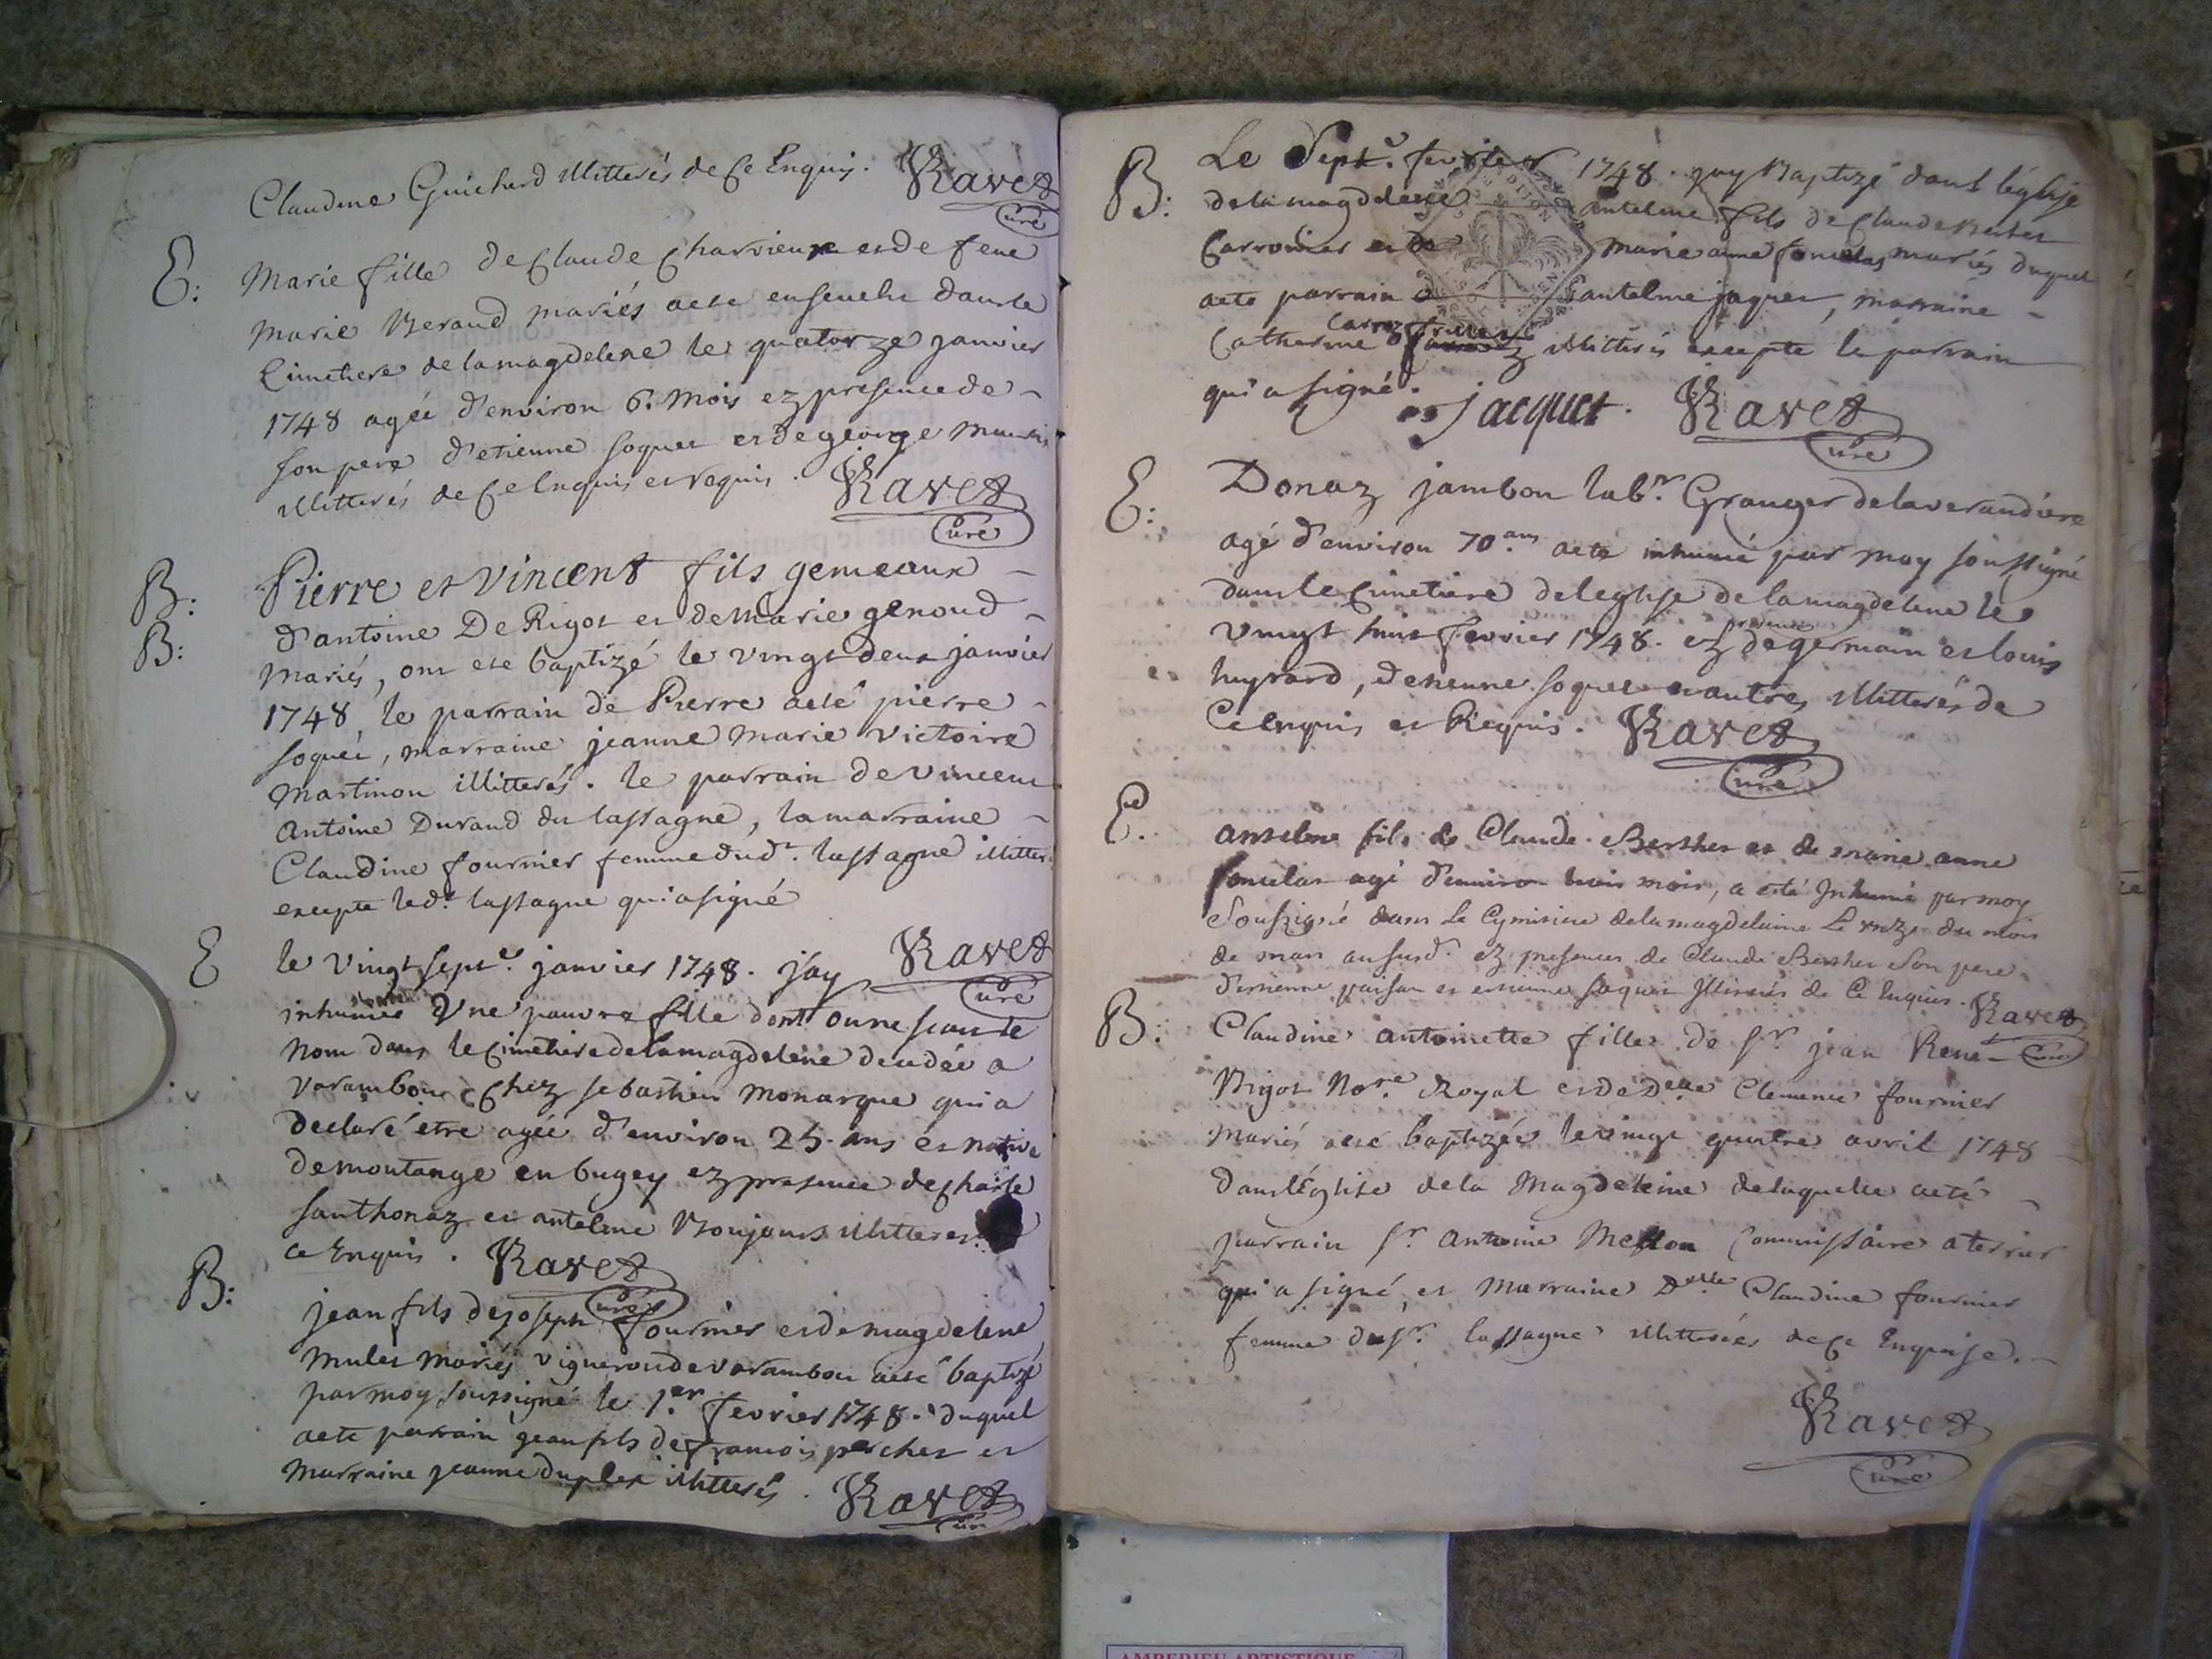 Claudine Guichard illitterés de ce Enquis. Ravet
curé
E: Marie fille de Claude Charvieux et de feue
Marie Beraud mariés a eté ensevelie dans le
Cimetiere de la magdelene le quatorze janvier
1748 agée d'environ 6. mois ez presence de
son pere d'etienne soquet et de george
illitterés de ce Enquis et requis. Ravet
curé
B: Pierre et vincent fils gemeaux
B: d'antoine De Rigot et de Marie genoud
mariés, ont ete baptizé le vingt deux janvier
1748 le parrain de Pierre a eté pierre
soquet, marraine jeanne Marie victoire
Martinon illitterés. le parrain de vincent
Antoine Durand du lassagne, la marraine
Claudine fournier femme dud. lassagne illitter
excepte led. lassagne qui a signé
Ravet
curé
E le vingt sept.e janvier 1748. j'ay
inhumée Une pauvre fille dont on ne scait le
Nom dans le cimetiere de la magdelene decedée a
varambon chez sebastien Monarque qui a
declaré etre agée d'environ 25. ans et native
de montange en bugey ez presence de charle
santhonaz et antelme Boujours illitteres
ce Enquis. Ravet
curé
B: jean fils de joseph fournier et de magdelene
Mulet mariés vigneron de varambon a eté baptizé
par moy soussigné le 1.er fevrier 1748. duquel
a eté parrain jean fils de francois percher et
marraine jeanne duplex illitterés. Ravet
curé
B: Le Sept.e fevrier 1748. j'ay Baptizé dans l'eglise
de la magdelene antelme fils de Claude Berthet
Carronier et de marie anne mariés duquel
a eté parrain antelme jaquet, marraine
Carroz
Catherine illitterés excepte le parrain
qui a signé.
jacquet. Ravet
curé
E: Donaz jambon lab.r Granger de la verandiere
agé d'environ 70.ans a eté inhumé par moy soussigné
dans le cimetiere de leglise de la magdelene le
presence
vingt huit fevrier 1748. ez de germain et louis
huyrard, d'etienne soquet et autres illitterés de
Ce enquis et Requis. Ravet
curé
E. antelme fils de Claude Berthet et de marie anne
agé d'environ trois mois, a esté Inhumé par moy
Soussigné dans le Cymitiere de la magdelaine Le onze du mois
de mars an susd. ez presences de Claude Berthet Son pere
d'estienne et estienne soquet Illiterés de Ce Enquis. Ravet
curé
B: Claudine antoinette fille de S.r jean René
Bigot No.re Royal et de D.elle Clemence fournier
Mariés a eté baptizée le vingt quatre avril 1748
dans l'église de la Magdeleine de laquelle a eté
parrain S.r Antoine Commissaire a terrier
qui a signé, et Marraine D.elle Claudine fournier
femme du S.r lassagne illitterées de ce Enquise.
Ravet
curé
AMBERIEU ARTISTIQUE